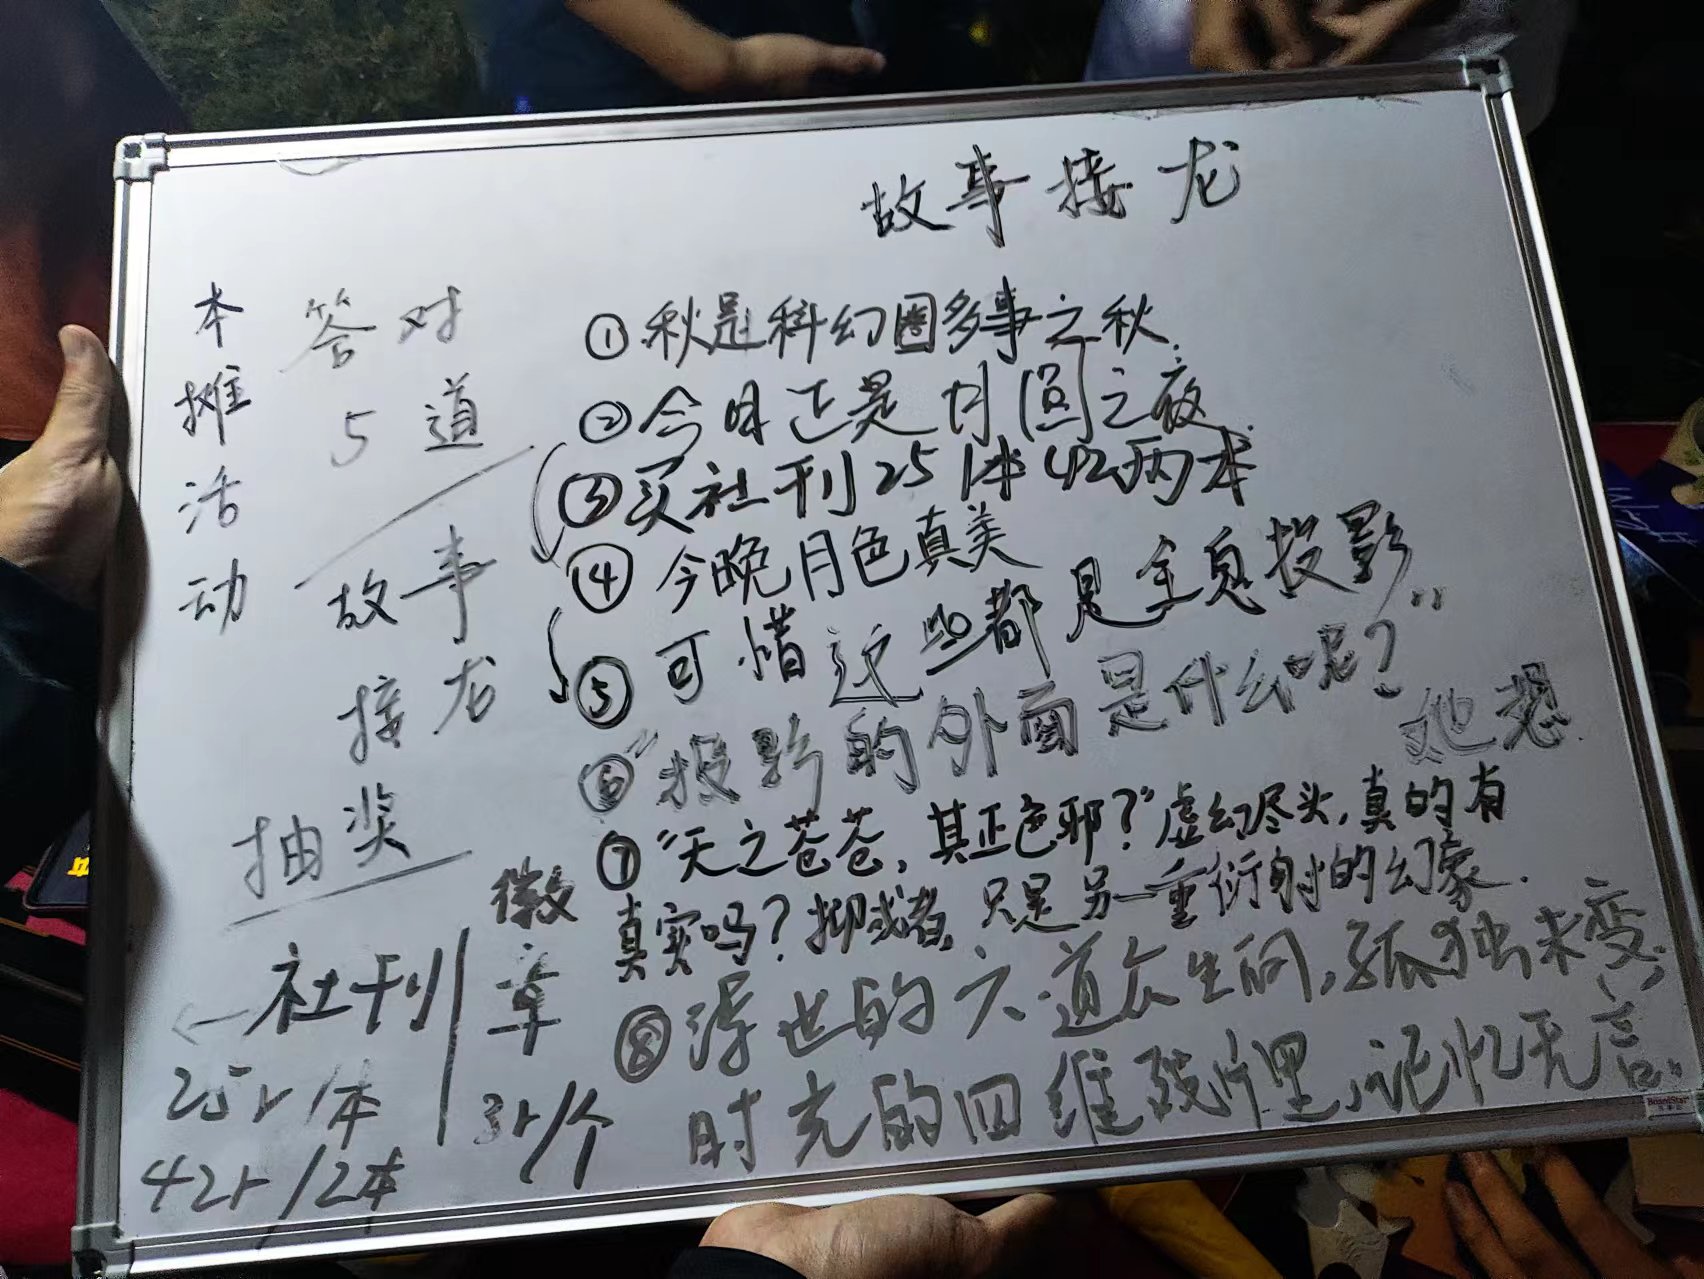 故事接龙
本摊活动
答对
5道
故事
接龙
抽奖
←社刊
25r/本
42r/2本
徽章
3r/个
①秋是科幻圈多事之秋.
②今日正是月圆之夜.
③买社刊25 1本 42两本
④今晚月色真美
⑤可惜这些都是全息投影
⑥“投影的外面是什么呢?”
她想.
⑦“天之苍苍,其正色邪?”虚幻尽头,真的有
真实吗?抑或者,只是另一重衍射的幻象.
⑧浮世的六道众生间,孤独未变;
时光的四维残片里,记忆无言.
BoardStar